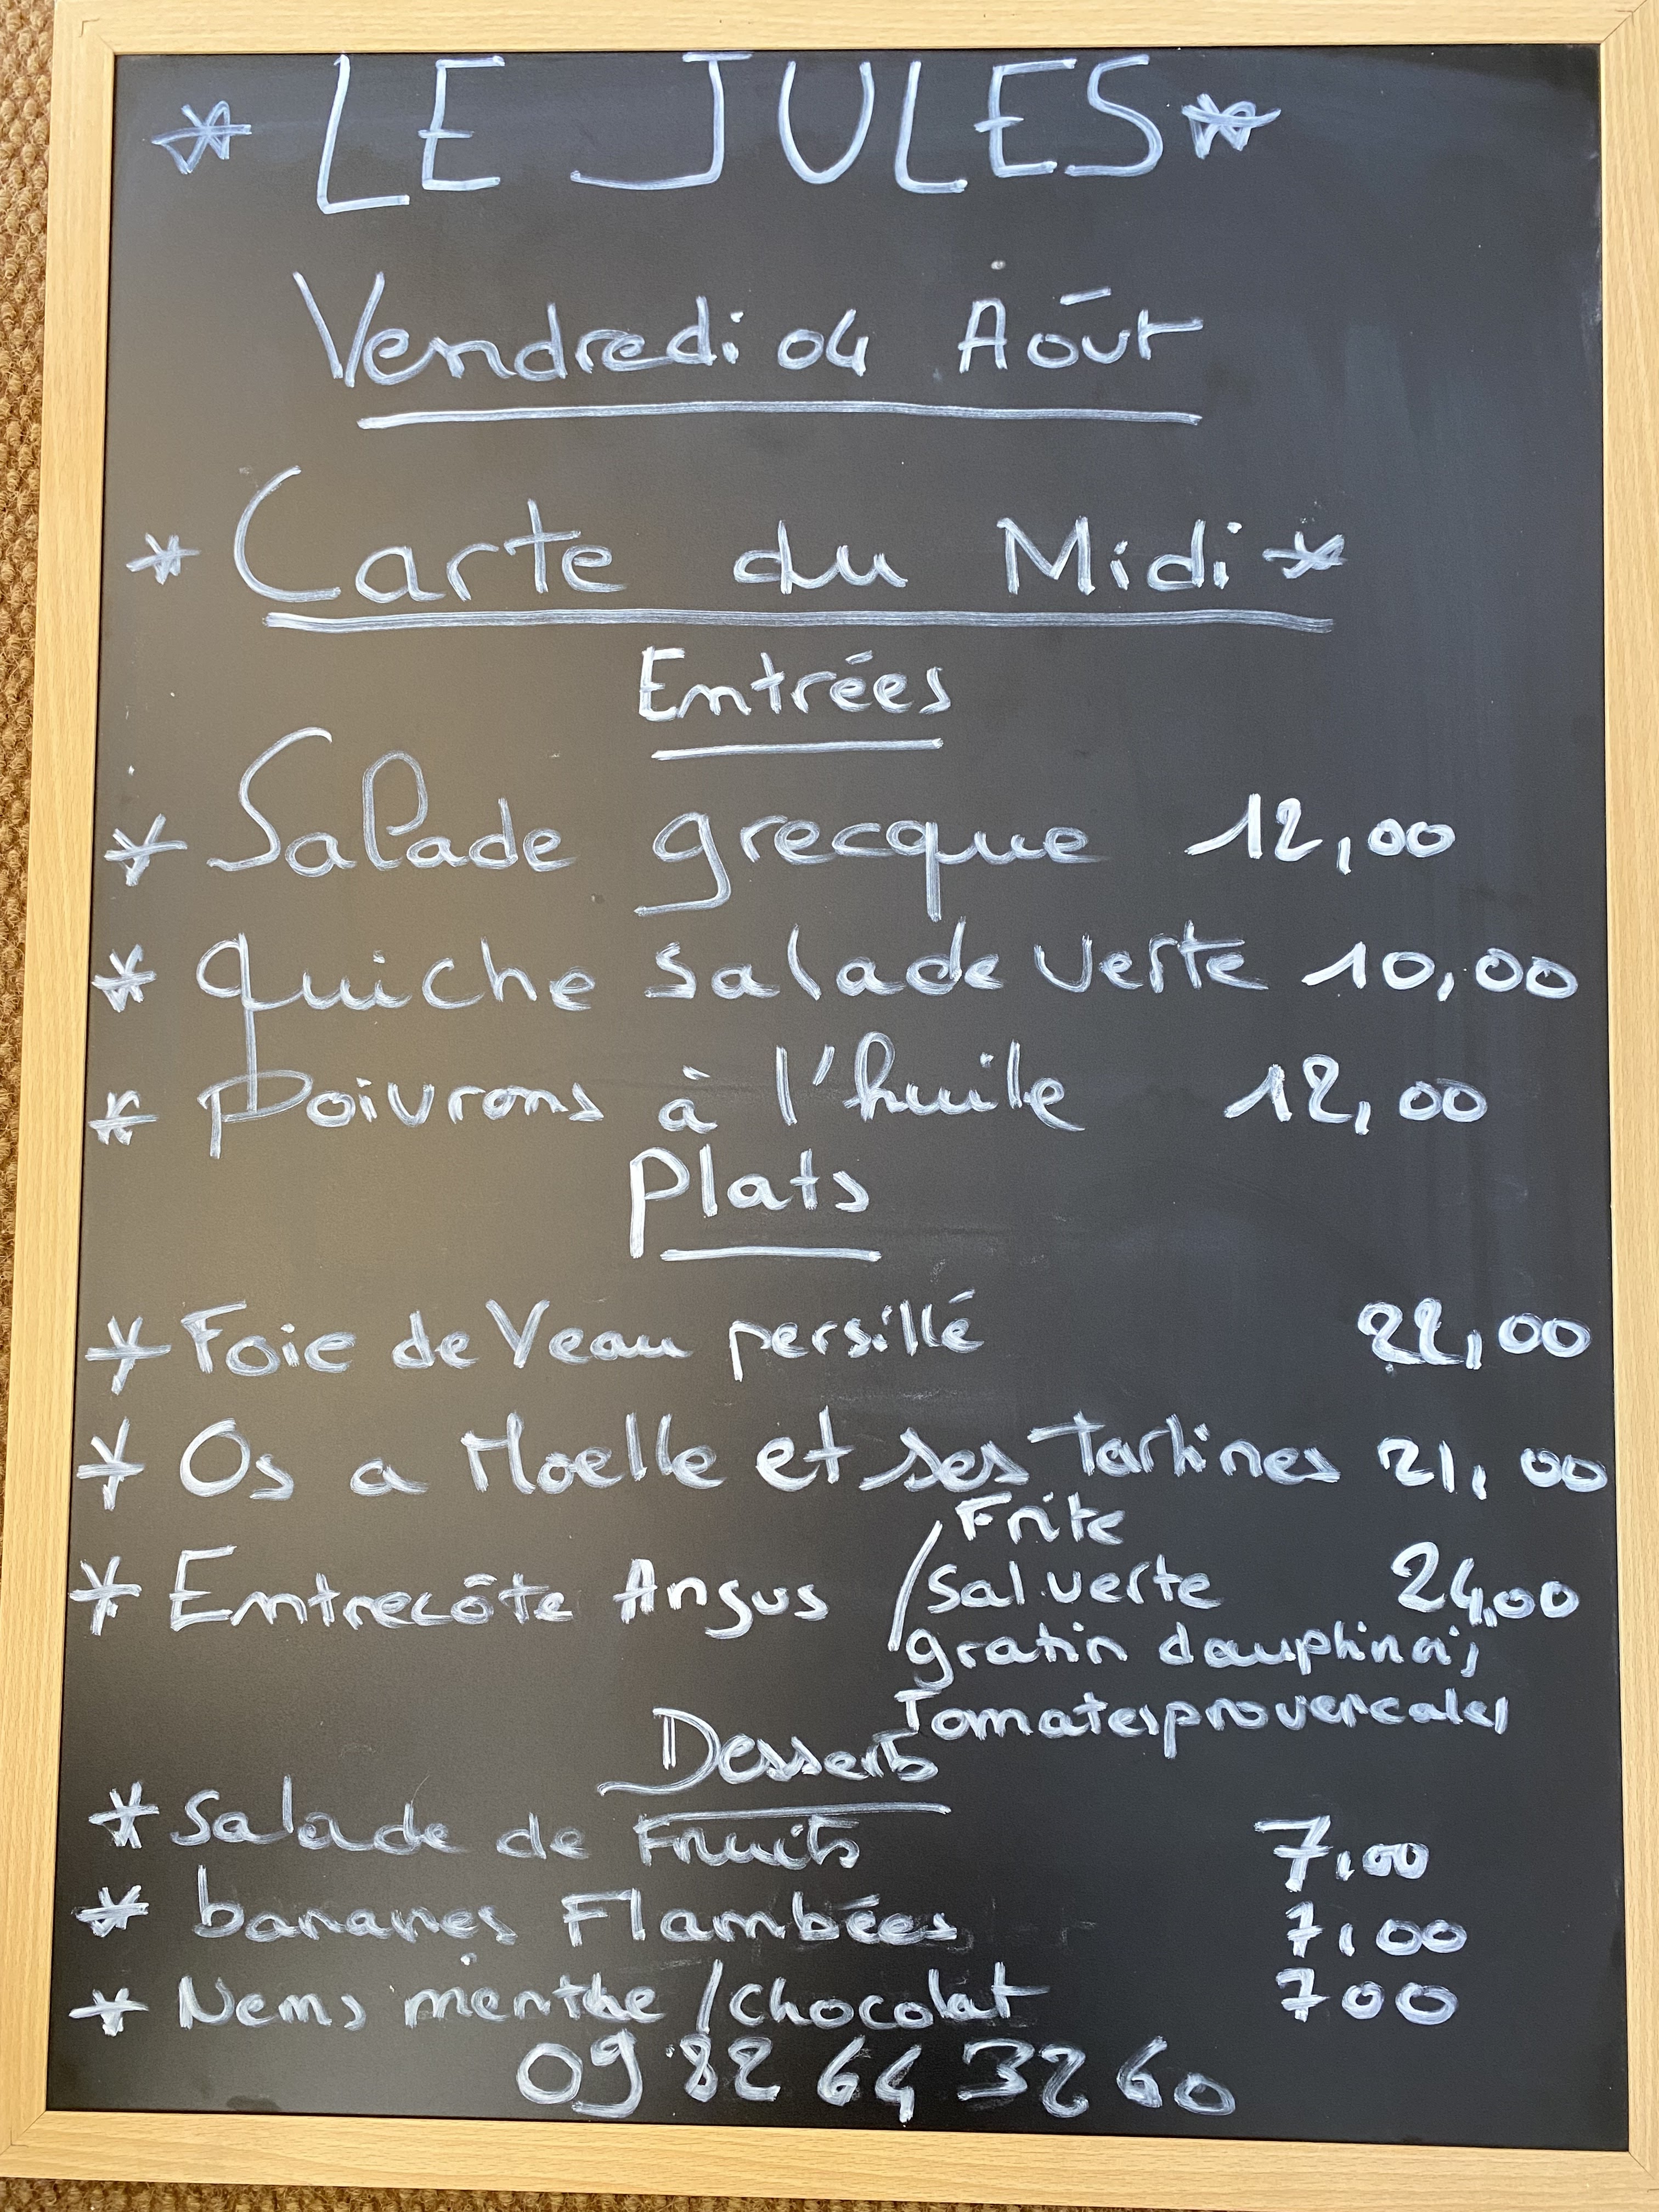 * LE JULES *
Vendredi 04 Août
* Carte du Midi *
Entrées
* Salade grecque 12,00
* quiche salade verte 10,00
* poivrons à l'huile 12,00
Plats
* Foie de Veau persillé 22,00
* Os a Moelle et ses Tartines 21,00
Frite
* Entrecôte Angus / sal.verte 24,00
gratin dauphinois
Tomates provencales
Desserts
* Salade de Fruits 7,00
* bananes Flambées 7,00
* Nems menthe / chocolat 700
09 82 64 32 60